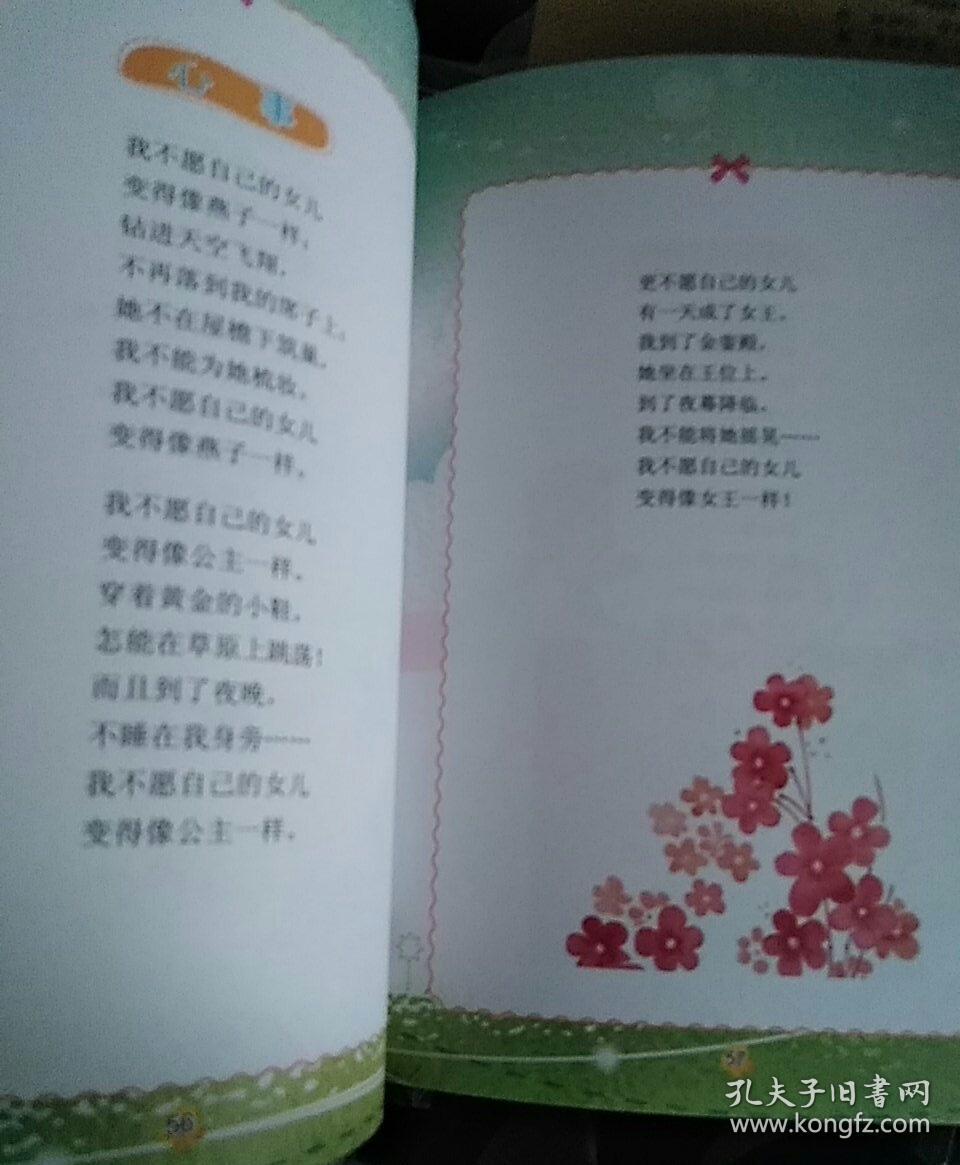 心事
我不愿自己的女儿
变得像燕子一样，
钻进天空飞翔，
不再落到我的席子上，
她不在屋檐下筑巢，
我不能为她梳妆，
我不愿自己的女儿
变得像燕子一样。
我不愿自己的女儿
变得像公主一样。
穿着黄金的小鞋，
怎能在草原上跳荡！
而且到了夜晚，
不睡在我身旁……
我不愿自己的女儿
变得像公主一样。
50
更不愿自己的女儿
有一天成了女王。
我到了金銮殿，
她坐在王位上。
到了夜幕降临，
我不能将她摇晃……
我不愿自己的女儿
变得像女王一样！
孔夫子旧书网
www.kongfz.com